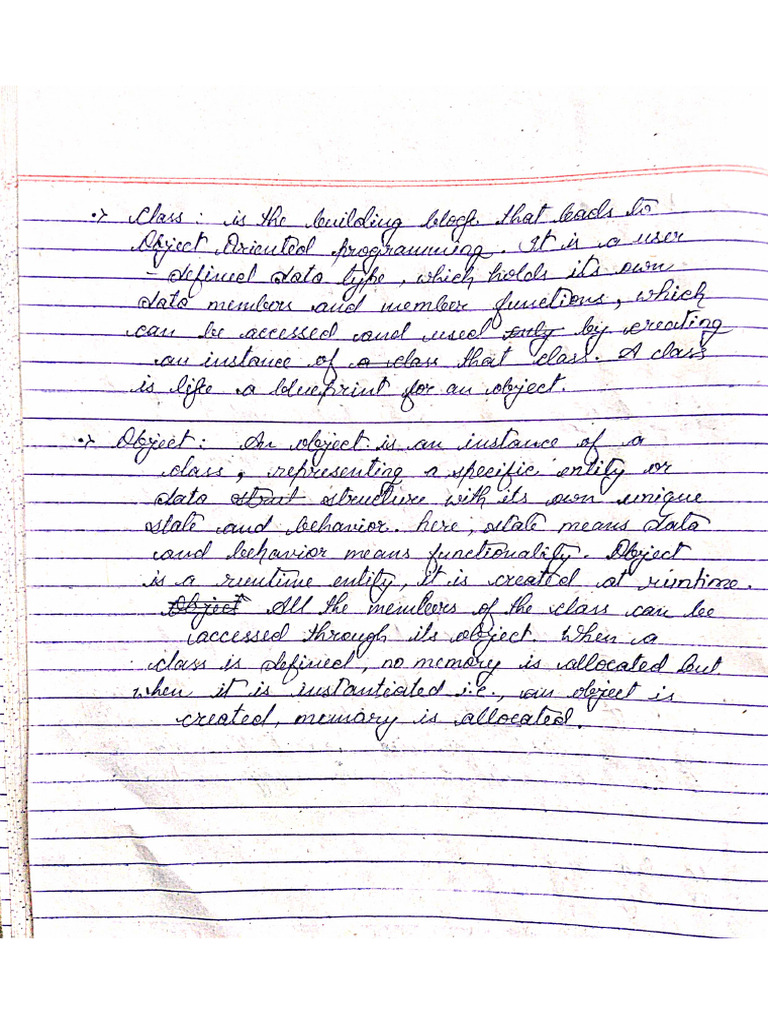 •> Class: is the building block that leads to
Object Oriented programming. It is a user
-defined data type, which holds its own
data members and member functions, which
can be accessed and used only by creating
an instance of a class that class. A class
is like a blueprint for an object.
•> Object: An object is an instance of a
class, representing a specific entity or
data strut structure with its own unique
state and behavior. here, state means data
and behavior means functionality. Object
is a runtime entity, it is created at runtime.
Object All the members of the class can be
accessed through its object. When a
class is defined, no memory is allocated but
when it is instantiated i.e., an object is
created, memory is allocated.